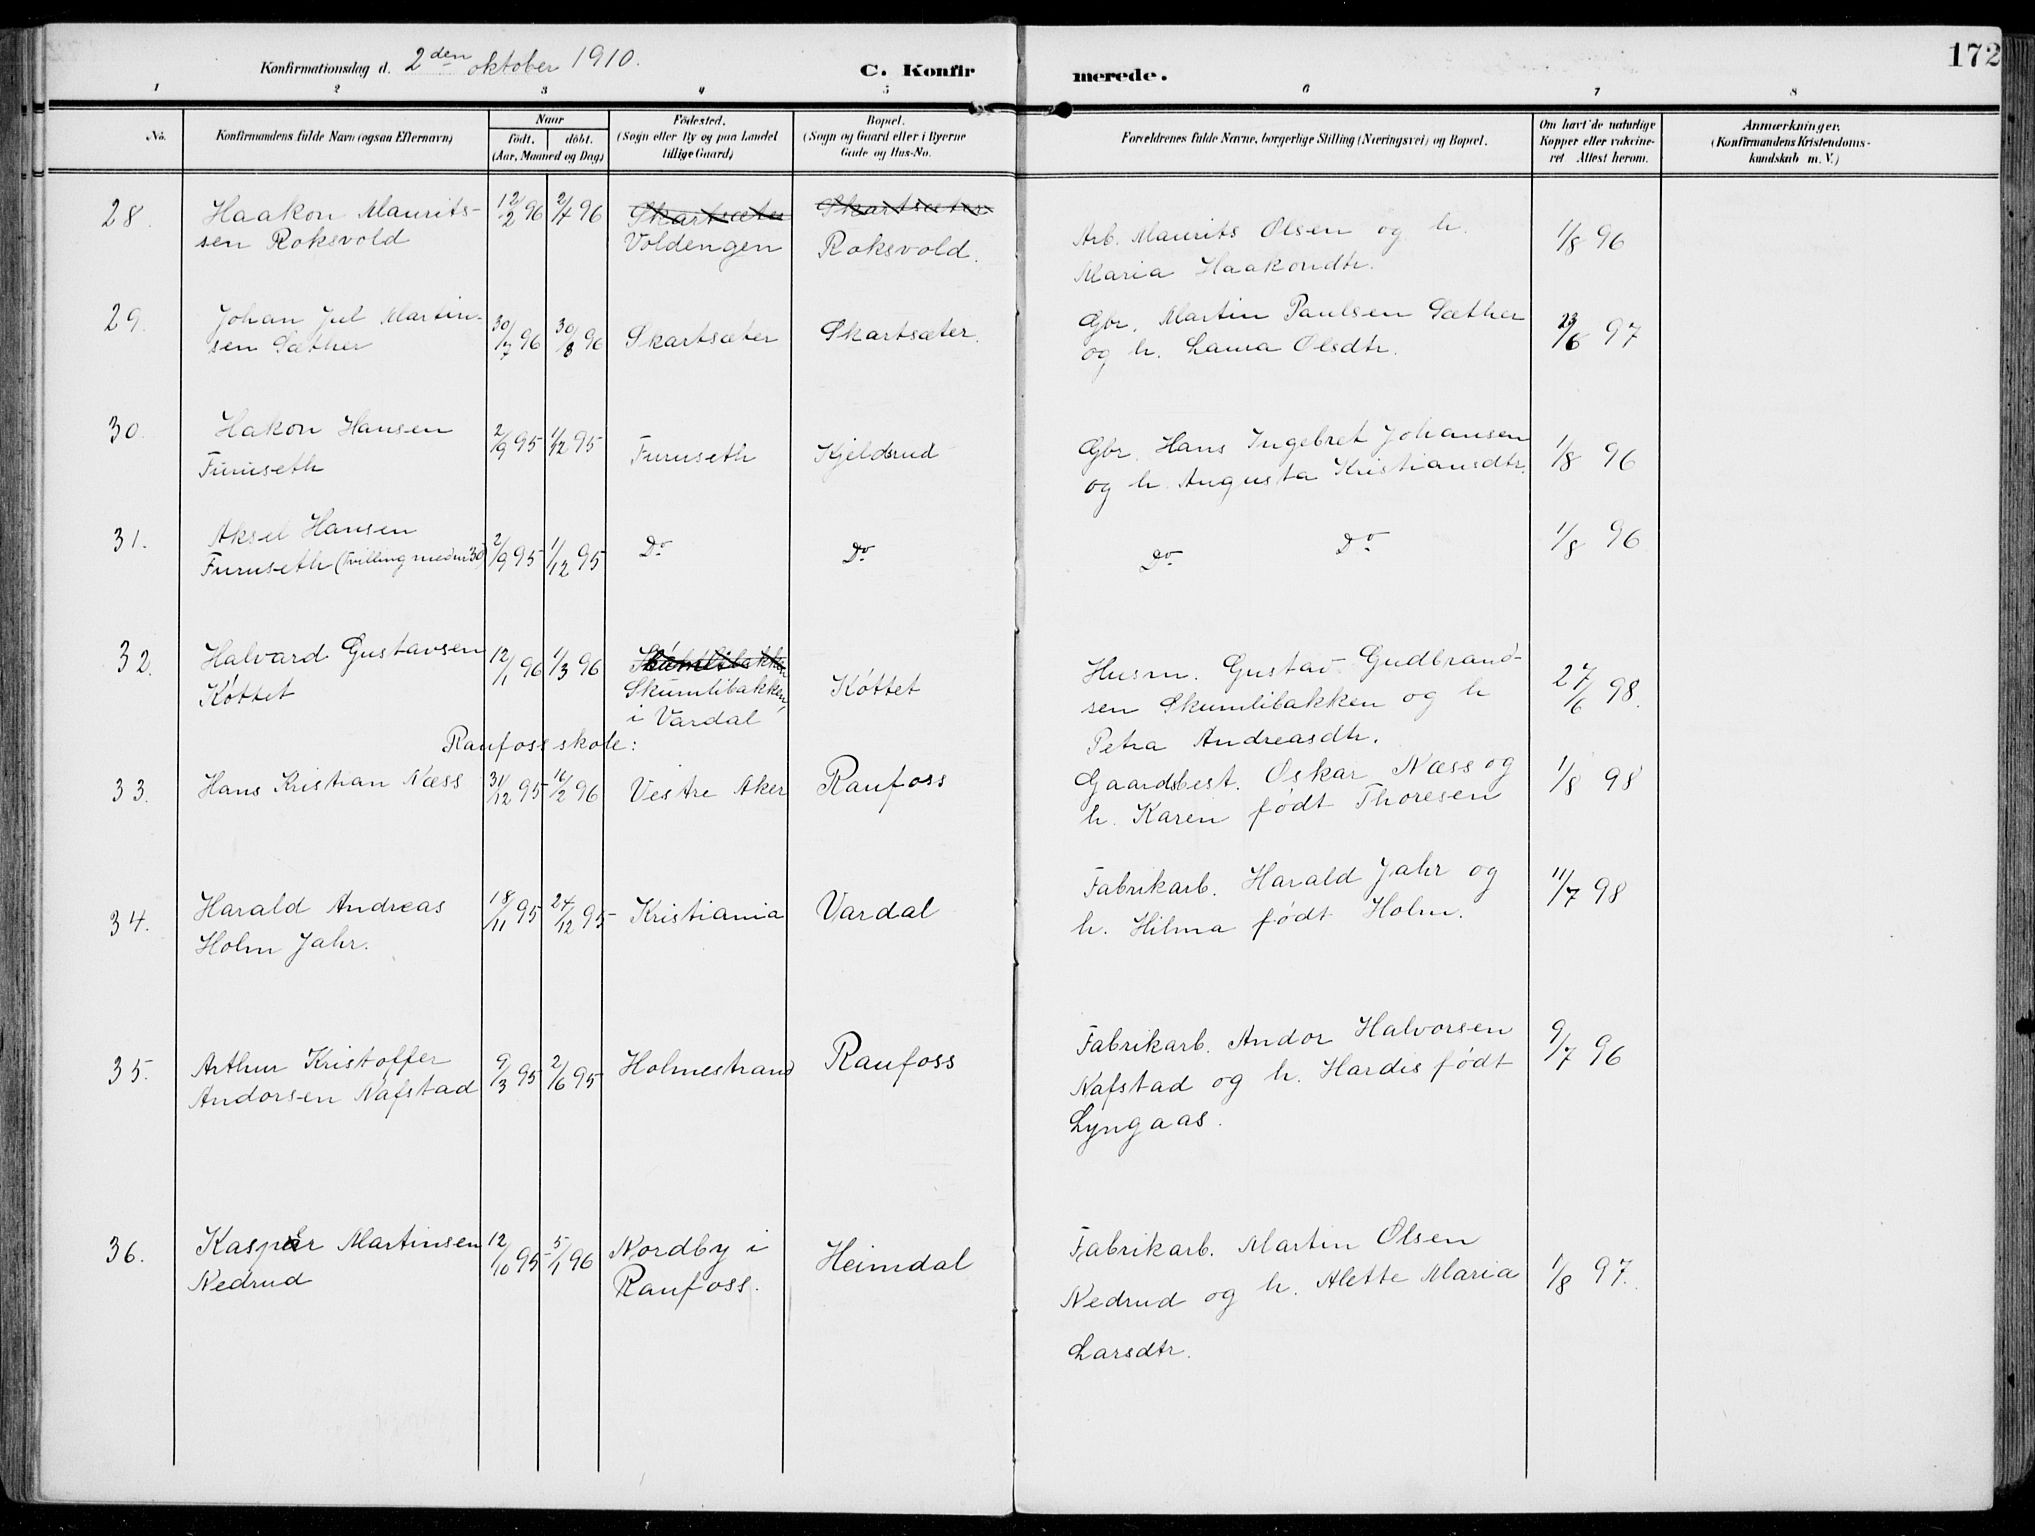 172
Konfirmationsdag d. 2den oktober 1910. C. Konfir merede.
1 2 3 4 5 6 7 8
No. Konfirmandens fulde Navn (ogsaa Efternavn) Naar født. døbt. (Aar, Maaned og Dag) Fødested. (Sogn eller By og paa Landet tillige Gaard) Bopæl. (Sogn og Gaard eller i Byerne Gade og Hus-No. Forældrenes fulde Navne, borgerlige Stilling (Næringsvei) og Bopæl. Om havt de naturlige Kopper eller vakcineret Attest herom. Anmærkninger. (Konfirmandens Kristendomskundskab m. V.)
28. Haakon Maurits- 12/2 96 2/4 96 Skartsæter Skartsæter Arb. Maurits Olsen og h. 1/8 96
sen Roksvold Voldengen Roksvold. Maria Haakondtr.
29. Johan Jul Martin- 30/7 96 30/8 96 Skartsæter Skartsæter. Gbr. Martin Paulsen Sæther 23/6 97
sen Sæther og h. Laura Olsdtr.
30. Hakon Hansen 2/9 95 1/12 95 Furuseth Kjeldsrud Gbr. Hans Ingebret Johansen 1/8 96
Furuseth og h. Augusta Kristiansdtr.
31. Aksel Hansen 2/9 95 1/12 95 Do Do Do Do 1/8 96
Furuseth (Tvilling med nr 30)
32. Halvard Gustavsen 12/1 96 1/3 96 Skumlibakken Husm. Gustav Gudbrand- 27/6 98.
Køttet Skumlibakken, Køttet sen Skumlibakken og h
i Vardal Petra Andreasdtr.
Raufoss skole:
33. Hans Kristian Næss 31/12 95 16/2 96 Vestre Aker Raufoss Gaardsbest. Oskar Næss og 1/8 98
h. Karen født Thoresen
34. Harald Andreas 18/11 95 24/12 95 Kristiania Vardal Fabrikarb. Harald Jahr og 11/7 98
Holm Jahr. h. Hilma født Holm.
35. Arthur Kristoffer 9/3 95 2/6 95 Holmestrand Raufoss Fabrikarb. Andor Halvorsen 9/7 96
Andorsen Nafstad Nafstad og h. Hardis født
Lyngaas.
36. Kasper Martinsen 12/10 95 5/1 96 Nordby i Heimdal Fabrikarb. Martin Olsen 1/8 97.
Nedrud Raufoss. Nedrud og h. Alette Maria
Larsdtr.